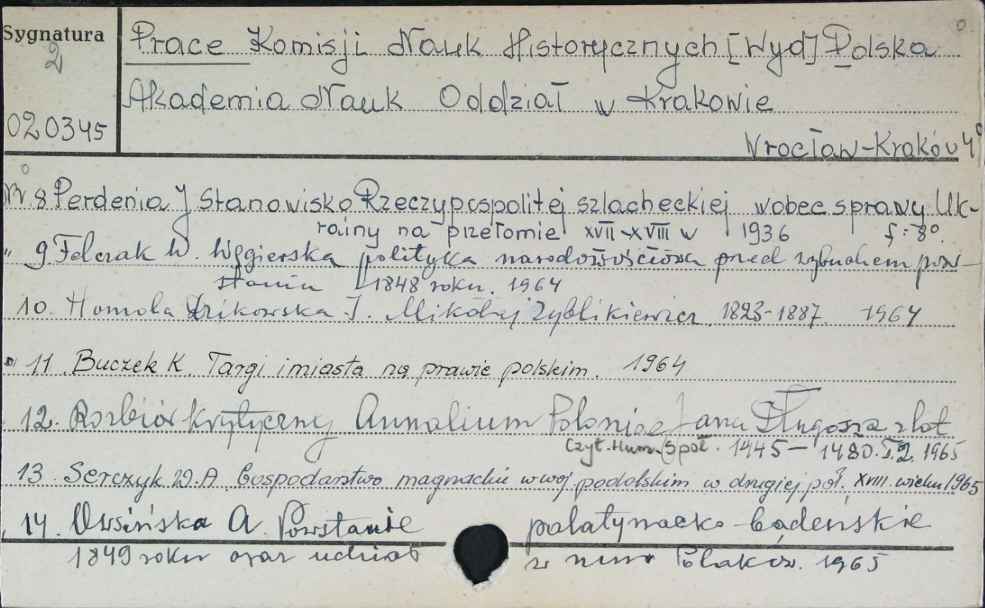 Sygnatura
2
020345
Prace Komisji Nauk Historycznych [Wyd] Polska
Akademia Nauk Oddział w Krakowie
Wrocław-Kraków 4°
Nr 8 Perdenia J Stanowisko Rzeczypospolitej szlacheckiej wobec sprawy Uk-
rainy na przełomie XVII-XVIII w 1936 f: 8°.
" 9 Felczak W. Węgierska polityka narodowościowa przed wybuchem pow-
stania 1848 roku. 1964
10. Homola Dzikowska J. Mikołaj Zyblikiewicz 1823-1887 1964
" 11. Buczek K. Targi i miasta na prawie polskim. 1964
12. Rozbiór krytyczny Annalium Poloniae Jana Długosza z lat
Czyt. Hum. Społ. 1445-1480. T.2. 1965
13 Serczyk W.A. Gospodarstwo magnackie w woj podolskim w drugiej poł. XVIII wieku 1965
14. Owsińska A. Powstanie palatynacko-badeńskie
1849 roku oraz udział w nim Polaków. 1965